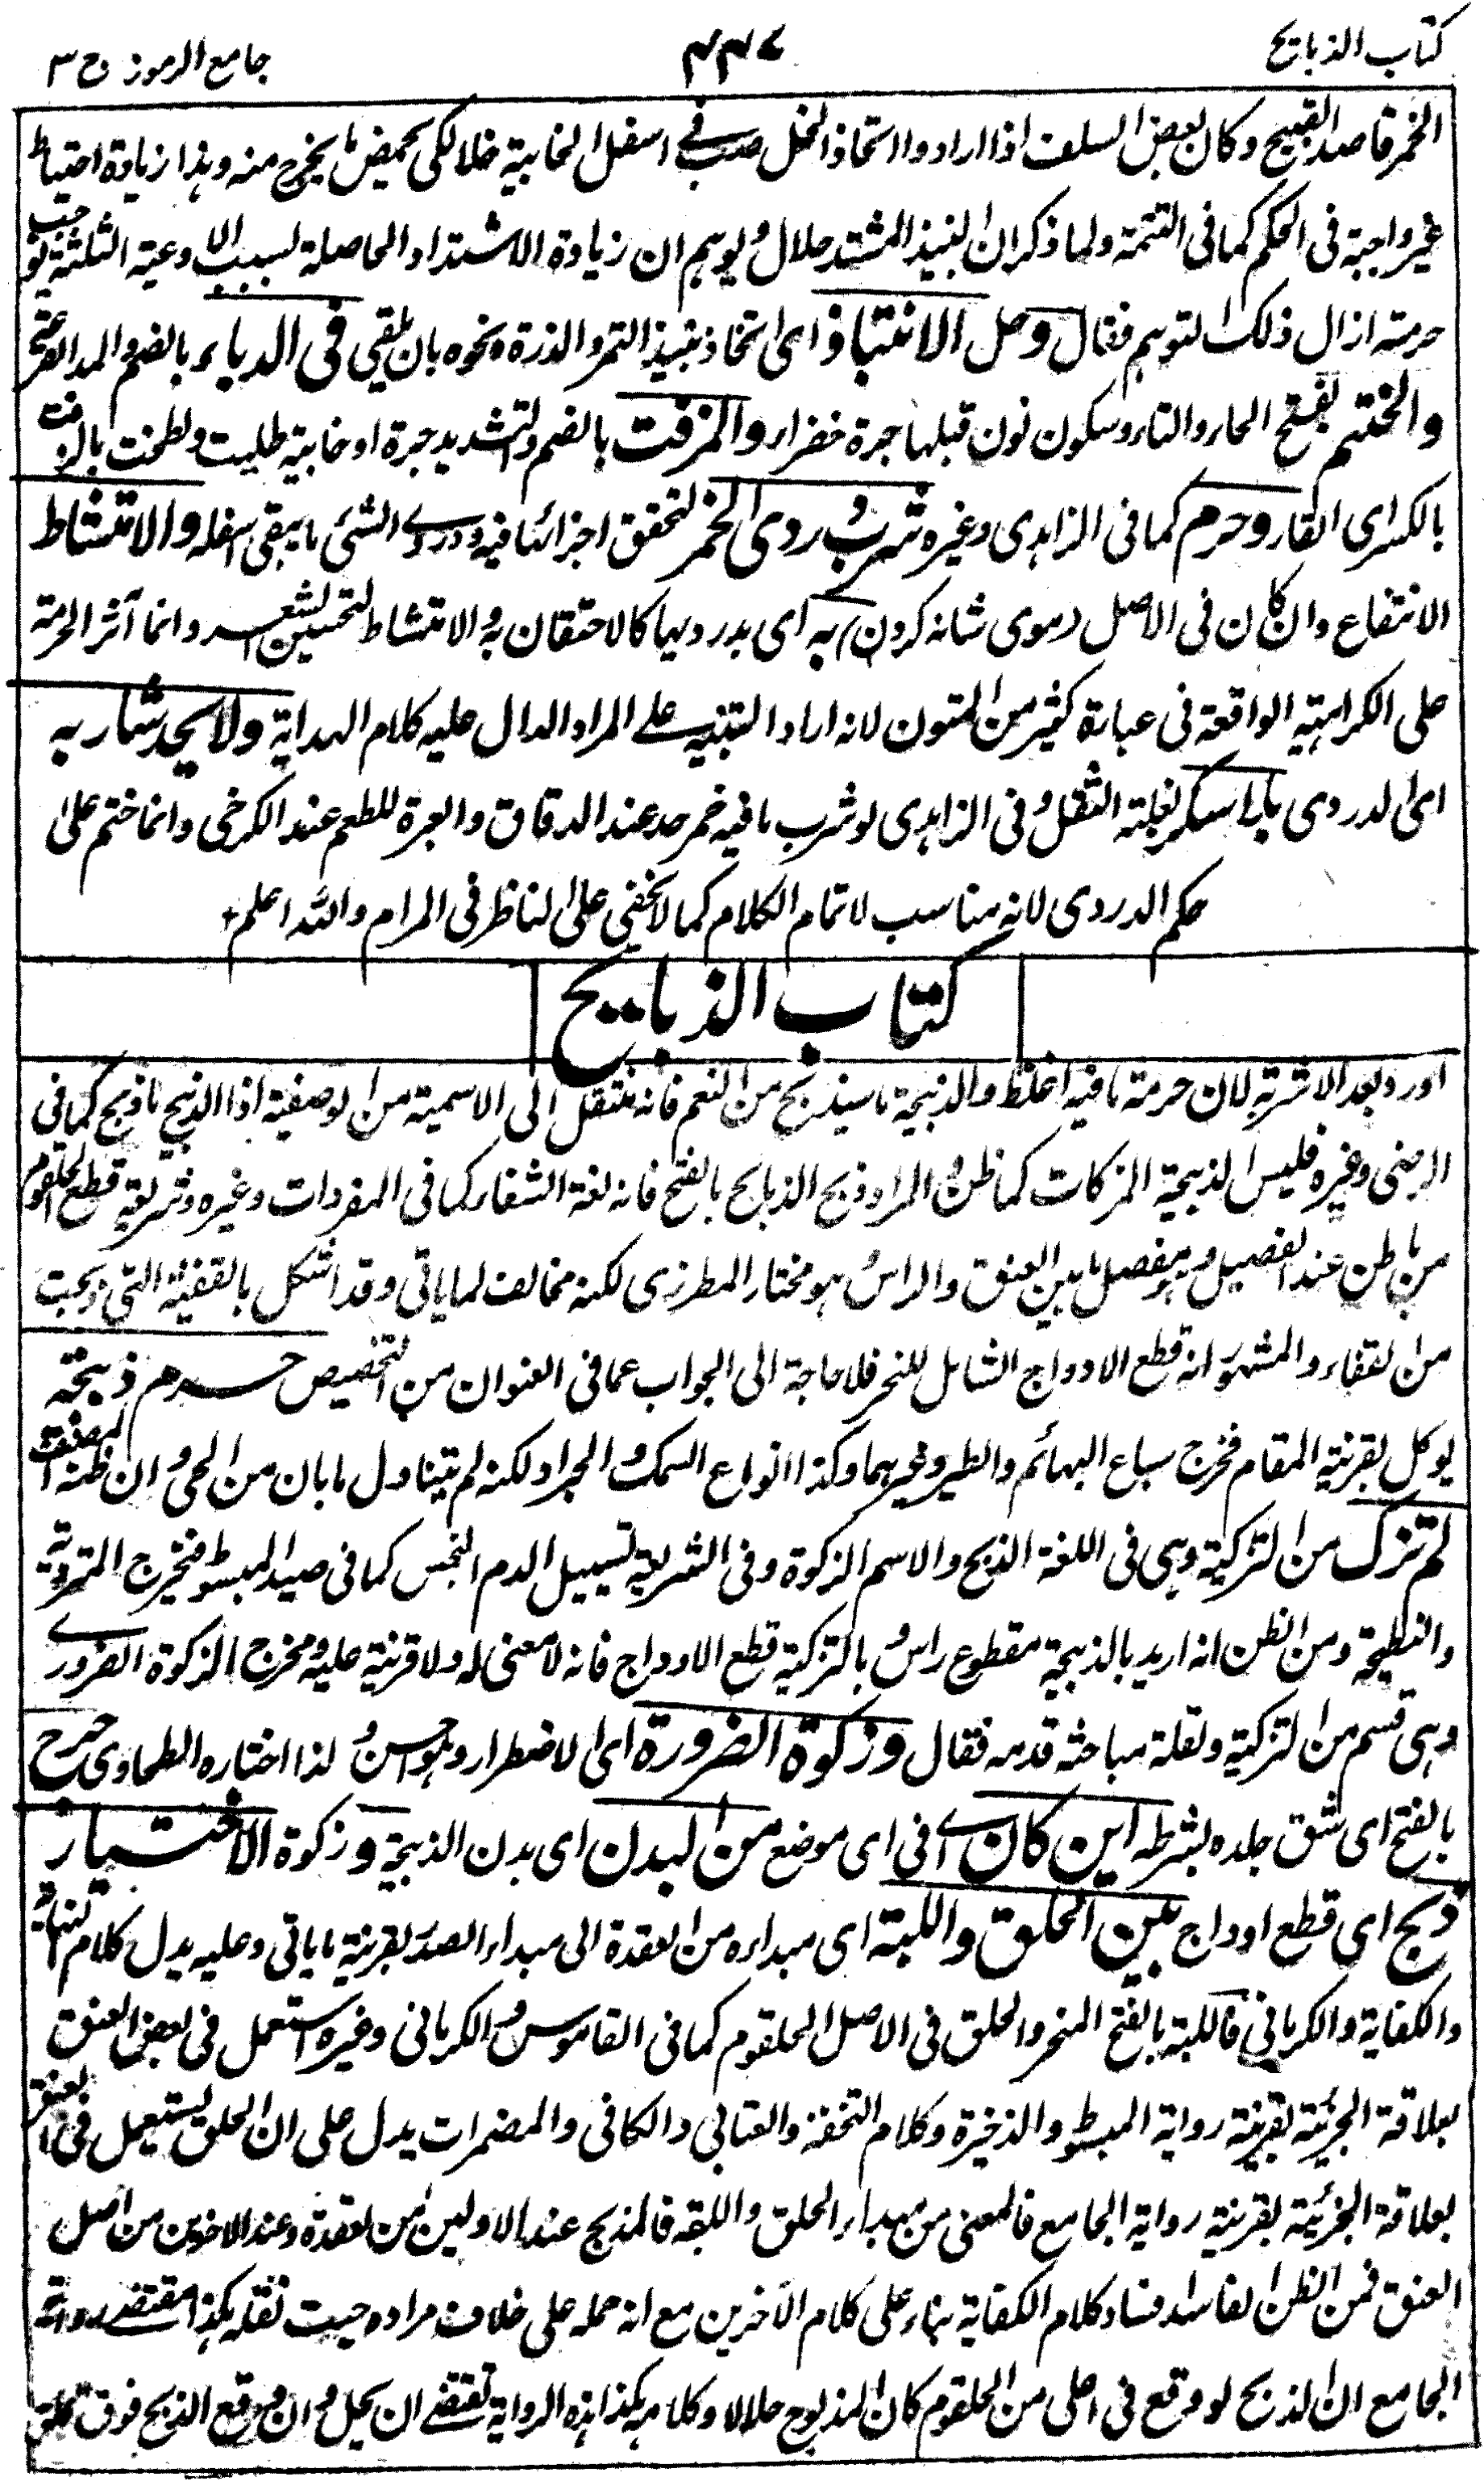 كتاب الذبايح
٤٤٧
جامع الرموز ج ٣
الخمر قاصد القبيح وكان بعض السلف اذا ارادوا اتخاذ الخل صب في اسفل الخابية خلا لكي يحمض ما يخرج منه وهذا زيادة احتياط
غير واجبة فى الحكم كما فى التتمة ولما ذكر ان النبيذ المشتد حلال ويوهم ان زيادة الاشتداد الحاصلة بسبب الاوعية الثلثة توجب
حرمته ازال ذلك التوهم فقال وحل الانتباذ اى اتخاذ نبيذ التمر والذرة ونحوه بان يلقى فى الدباء بالضم والمد القرع
والختتم بفتح الحاء والتاء وسكون نون قبلها جرة خضراء والمزفت بالضم والتشديد جرة او خابية طليت ولطخت بالزفت
بالكسر اى القار وحرم كما فى الزاهدى وغيره شرب دردى الخمر لتحقق اجزائها فيه ودردي الشئ ما يبقى اسفله والامتشاط
الانتفاع وان كان فى الاصل رموى شانه كردن به اى بدرديها كالاحتقان به والامتشاط لتحسين الشعر وانما آثر الحرمة
على الكراهية الواقعة فى عبارة كثير من المتون لانه اراد التنبيه على المراد الدال عليه كلام الهداية ولا يحد شاربه
اى الدردى بلا سكر لغلبة الثفل وفى الزاهدى لو شرب ما فيه خمر حد عند الدقاق والعبرة للطعم عند الكرخى وانما ختم على
حكم الدردى لانه مناسب لاتمام الكلام كما لا يخفى على الناظر فى المرام والله اعلم
كتاب الذبايح
اورد بعد الاشربة لان حرمة ما فيه اغلظ والذبيحة ما سيذبح من النعم فانه منتقل الى الاسمية من الوصفية اذ الذبيح ما ذبح كما فى
الرضى وغيره فليس الذبيحة المزكات كما ظن والمراد ذبح الذبايح بالفتح فانه لغة الشق كما فى المفردات وغيره وشريعة قطع الحلقوم
من باطن عند الفصيل وهو مفصل ما بين العنق والراس هو مختار المطرزى لكنه مخالف لما ياتى وقد اشكل بالقفية التى ذبحت
من القفاء والمشهور انه قطع الاوداج الشامل للنحر فلا حاجة الى الجواب عما فى العنوان من التخصيص حرم ذبيحة
يوكل بقرينة المقام فخرج سباع البهائم والطير وغيرهما وكذا انواع السمك والجراد لكنه لم يتناول ما بان من الحى وان ظنه المصنف
لم تزك من التزكية وهى فى اللغة الذبح والاسم الزكوة وفى الشريعة تسييل الدم النجس كما فى صيد المبسوط فخرج المتردية
والنطيحة ومن الظن انه اريد بالذبيحة مقطوع راس وبالتزكية قطع الاوداج فانه لا معنى له ولا قرينة عليه ومخرج الزكوة الضروري
وهى قسم من التزكية ولقلة مباحثه قدمه فقال وزكوة الضرورة اى الاضطرار وهو احسن ولذا اختاره الطحاوى جرح
بالفتح اى شق جلده بشرطه اين كان اى فى اى موضع من البدن اى بدن الذبيحة وزكوة الاختيار
ذبح اى قطع اوداج بين الحلق واللبة اى مبداءه من العقدة الى مبداء الصدر بقرينة ما ياتى وعليه يدل كلام النهاية
والكفاية والكرمانى فاللبة بالفتح المنحر والحلق فى الاصل الحلقوم كما فى القاموس والكرمانى وغيره استعمل فى بعض العنق
بعلاقة الجزئية بقرينة رواية المبسوط والذخيرة وكلام التحفة والعتابى والكافى والمضمرات يدل على ان الحلق يستعمل فى العنق
بعلاقة الجزئية بقرينة رواية الجامع فالمعنى من مبداء الحلق واللبة فالمذبح عند الاولين من العقدة وعند الاخرين من اصل
العنق فمن الظن الفاسد فساد كلام الكفاية بناء على كلام الآخرين مع انه حمله على خلاف مراده حيث نقله هكذا مقتضى رواية
الجامع ان الذبح لو وقع فى اعلى من الحلقوم كان المذبوح حلالا وكلامه هكذا هذه الرواية تقتضى ان يحل وان وقع الذبح فوق الحلق